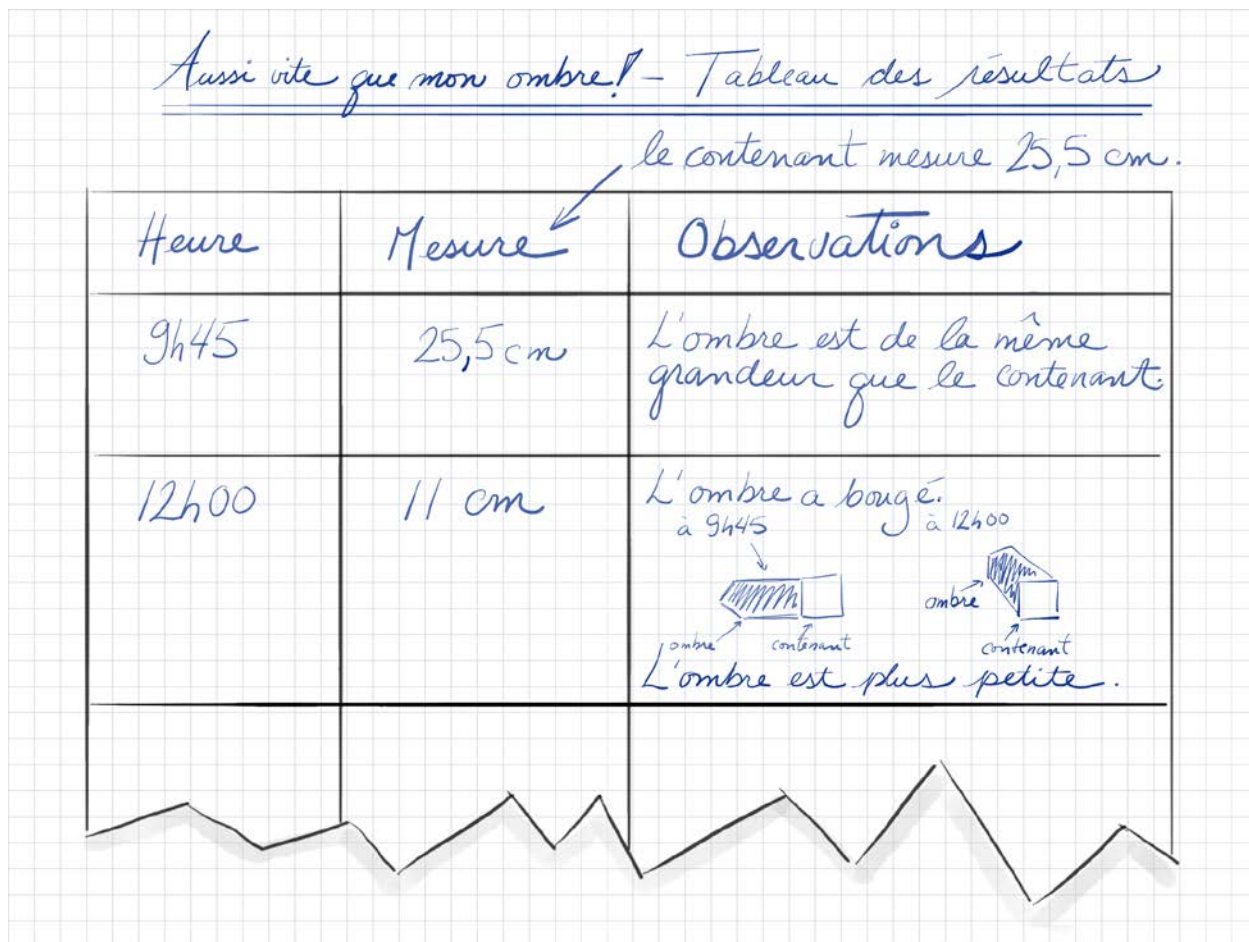 Aussi vite que mon ombre! - Tableau des résultats
le contenant mesure 25,5 cm.
Heure Mesure Observations
9h45 25,5 cm L'ombre est de la même
grandeur que le contenant.
12h00 11 cm L'ombre a bougé.
à 9h45 à 12h00
ombre
ombre contenant contenant
L'ombre est plus petite.